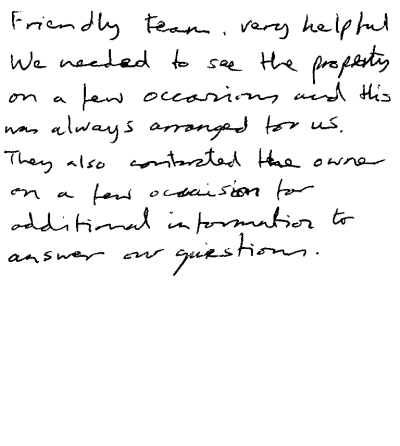 Friendly team, very helpful
We needed to see the property
on a few occasions and this
was always arranged for us.
They also contacted the owner
on a few occaision for
additional information to
answer our questions.